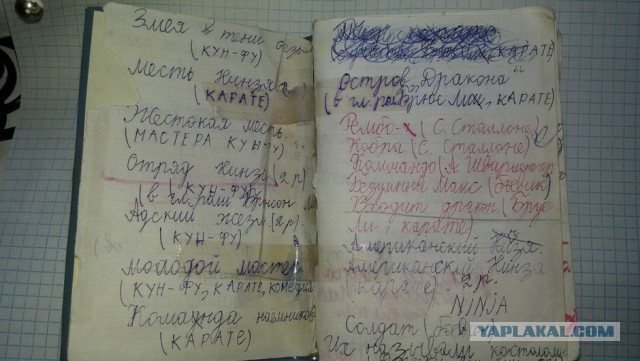 Змея в тени
(КУН-ФУ)
Месть Нинзя
(КАРАТЕ)
Жестокая месть
(МАСТЕРА КУН-ФУ)
Отряд Нинзя (2 р)
(КУН-ФУ)
(в гл. роли
Адский жезл (2 р)
(КУН-ФУ)
Молодой мастер
(КУН-ФУ, КАРАТЕ, комедия
Команда наёмников
(КАРАТЕ)
КАРАТЕ)
Остров „Дракона“
(в гл. роли Брюс Ли, КАРАТЕ)
Рембо-1 (С. Сталлоне)
Кобра (С. Сталлоне)
Коммандо (А. Шварценегер
Безумный Макс (боевик)
Входит дракон (Брус
Ли, карате)
Американский
Американский Нинза
(карате) 2 р.
NiNJA
Солдат
Их называли костолом
YAPLAKAL.COM